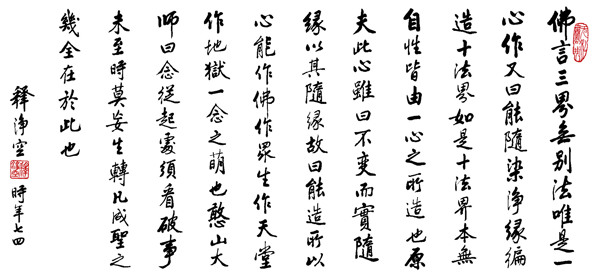 佛言三界無別法唯是一
心作又曰能隨染淨緣徧
造十法界如是十法界本無
自性皆由一心之所造也原
夫此心雖曰不变而實隨
緣以其隨緣故曰能造所以
心能作佛作眾生作天堂
作地獄一念之萌也憨山大
師曰念從起處須看破事
未至時莫妄生轉凡成聖之
幾全在於此也
釋淨空
時年七四